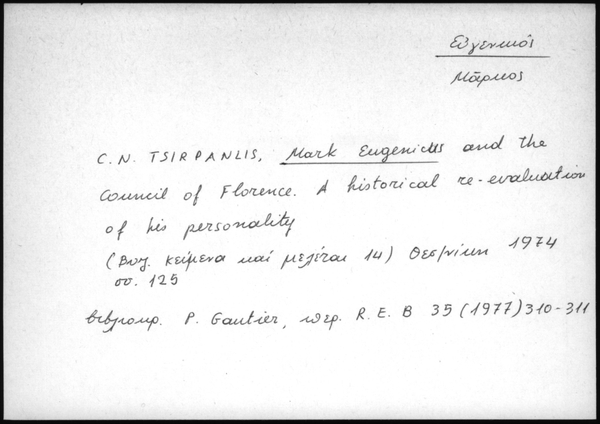 Εὐγενικός
Μᾶρκος
C. N. TSIRPANLIS, Mark Eugenicus and the
Council of Florence. A historical re-evaluation
of his personality
(Βυζ. κείμενα καί μελέται 14) Θεσ/νίκη 1974
σσ. 125
βιβλιοκρ. P. Gautier, περ. R. E. B 35 (1977) 310-311